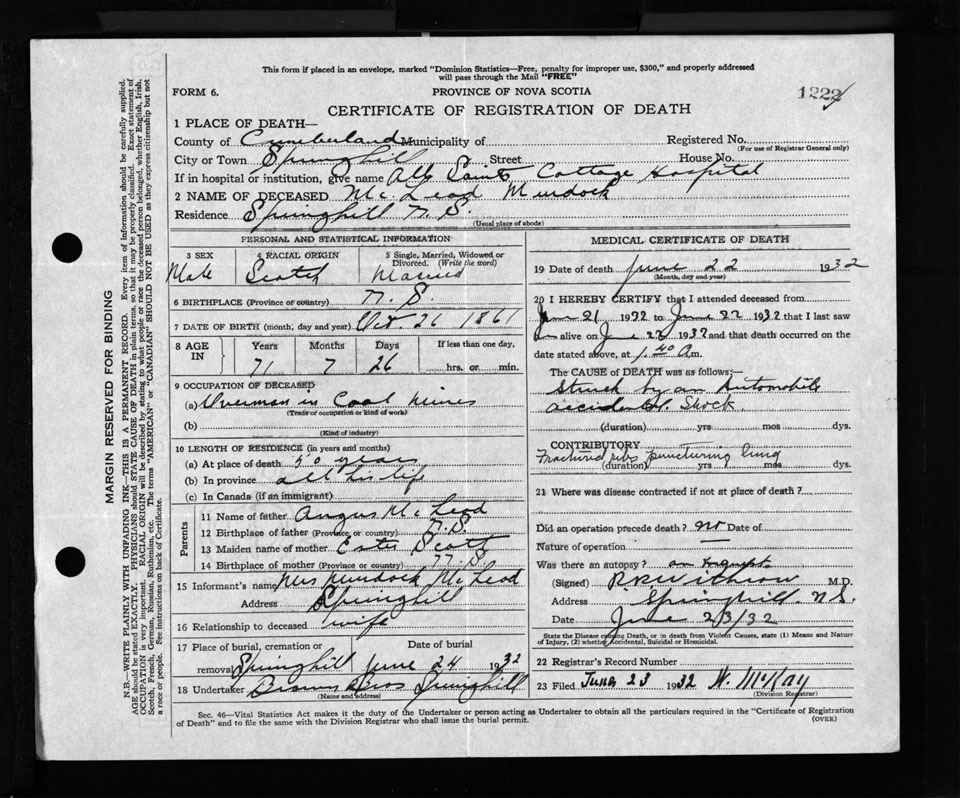 This form if placed in an envelope, marked "Dominion Statistics—Free, penalty for improper use, $300," and properly addressed
will pass through the Mail "FREE"
FORM 6.
PROVINCE OF NOVA SCOTIA
1222
CERTIFICATE OF REGISTRATION OF DEATH
1 PLACE OF DEATH—
County of Cumberland Municipality of
Registered No.
(For use of Registrar General only)
City or Town Springhill Street House No.
If in hospital or institution, give name All Saints Cottage Hospital
2 NAME OF DECEASED McLeod Murdock
Residence Springhill N.S.
(Usual place of abode)
PERSONAL AND STATISTICAL INFORMATION
3 SEX
Male
4 RACIAL ORIGIN
Scotch
5 Single, Married, Widowed or
Divorced. (Write the word)
Married
6 BIRTHPLACE (Province or country) N.S.
7 DATE OF BIRTH (month, day and year) Oct. 26 1861
8 AGE
IN
Years
71
Months
7
Days
26
If less than one day,
hrs. or min.
9 OCCUPATION OF DECEASED
(a) Overman in Coal Mines
(Trade of occupation or kind of work)
(b)
(Kind of industry)
10 LENGTH OF RESIDENCE (in years and months)
(a) At place of death 50 years
(b) In province all his life
(c) In Canada (if an immigrant)
Parents
11 Name of father Angus McLeod
12 Birthplace of father (Province or country) N.S.
13 Maiden name of mother Ester Scott
14 Birthplace of mother (Province or country) N.S.
15 Informant's name Mrs Murdock McLeod
Address Springhill
16 Relationship to deceased wife
17 Place of burial, cremation or
Date of burial
removal Springhill June 24 1932
18 Undertaker Bros Springhill
(Name and address)
MEDICAL CERTIFICATE OF DEATH
19 Date of death June 22 1932
(Month, day and year)
20 I HEREBY CERTIFY that I attended deceased from
June 21 1932 to June 22 1932 that I last saw
alive on June 22 1932 and that death occurred on
date stated above, at 1.40 A.m.
The CAUSE of DEATH was as follows:—
Struck by an Automobile
accidental. Shock
(duration) yrs mos dys.
CONTRIBUTORY
Fractured ribs puncturing lung
(duration) yrs mos dys.
21 Where was disease contracted if not at place of death?
Did an operation precede death? no Date of
Nature of operation —
Was there an autopsy?
(Signed) Withrow M.D.
Address Springhill. N.S.
Date June 23/32
State the Disease causing Death, or in death from Violent Causes, state (1) Means and Nature
of Injury, (2) whether Accidental, Suicidal or Homicidal.
22 Registrar's Record Number
23 Filed June 23 1932 N. McKay
(Division Registrar)
Sec. 46—Vital Statistics Act makes it the duty of the Undertaker or person acting as Undertaker to obtain all the particulars required in the "Certificate of Registration
of Death" and to file the same with the Division Registrar who shall issue the burial permit.
(OVER)
MARGIN RESERVED FOR BINDING
N.B.—WRITE PLAINLY WITH UNFADING INK—THIS IS A PERMANENT RECORD. Every item of information should be carefully supplied.
AGE should be stated EXACTLY. PHYSICIANS should STATE CAUSE OF DEATH in plain terms, so that it may be properly classified. Exact statement of
OCCUPATION is very important. RACIAL ORIGIN will be described by stating to what people or race the deceased person belonged, whether English, Irish,
Scotch, French, German, Russian, Ruthenian, etc. The terms "AMERICAN" or "CANADIAN" SHOULD NOT BE USED as they express citizenship but not
a race or people. See instructions on back of Certificate.